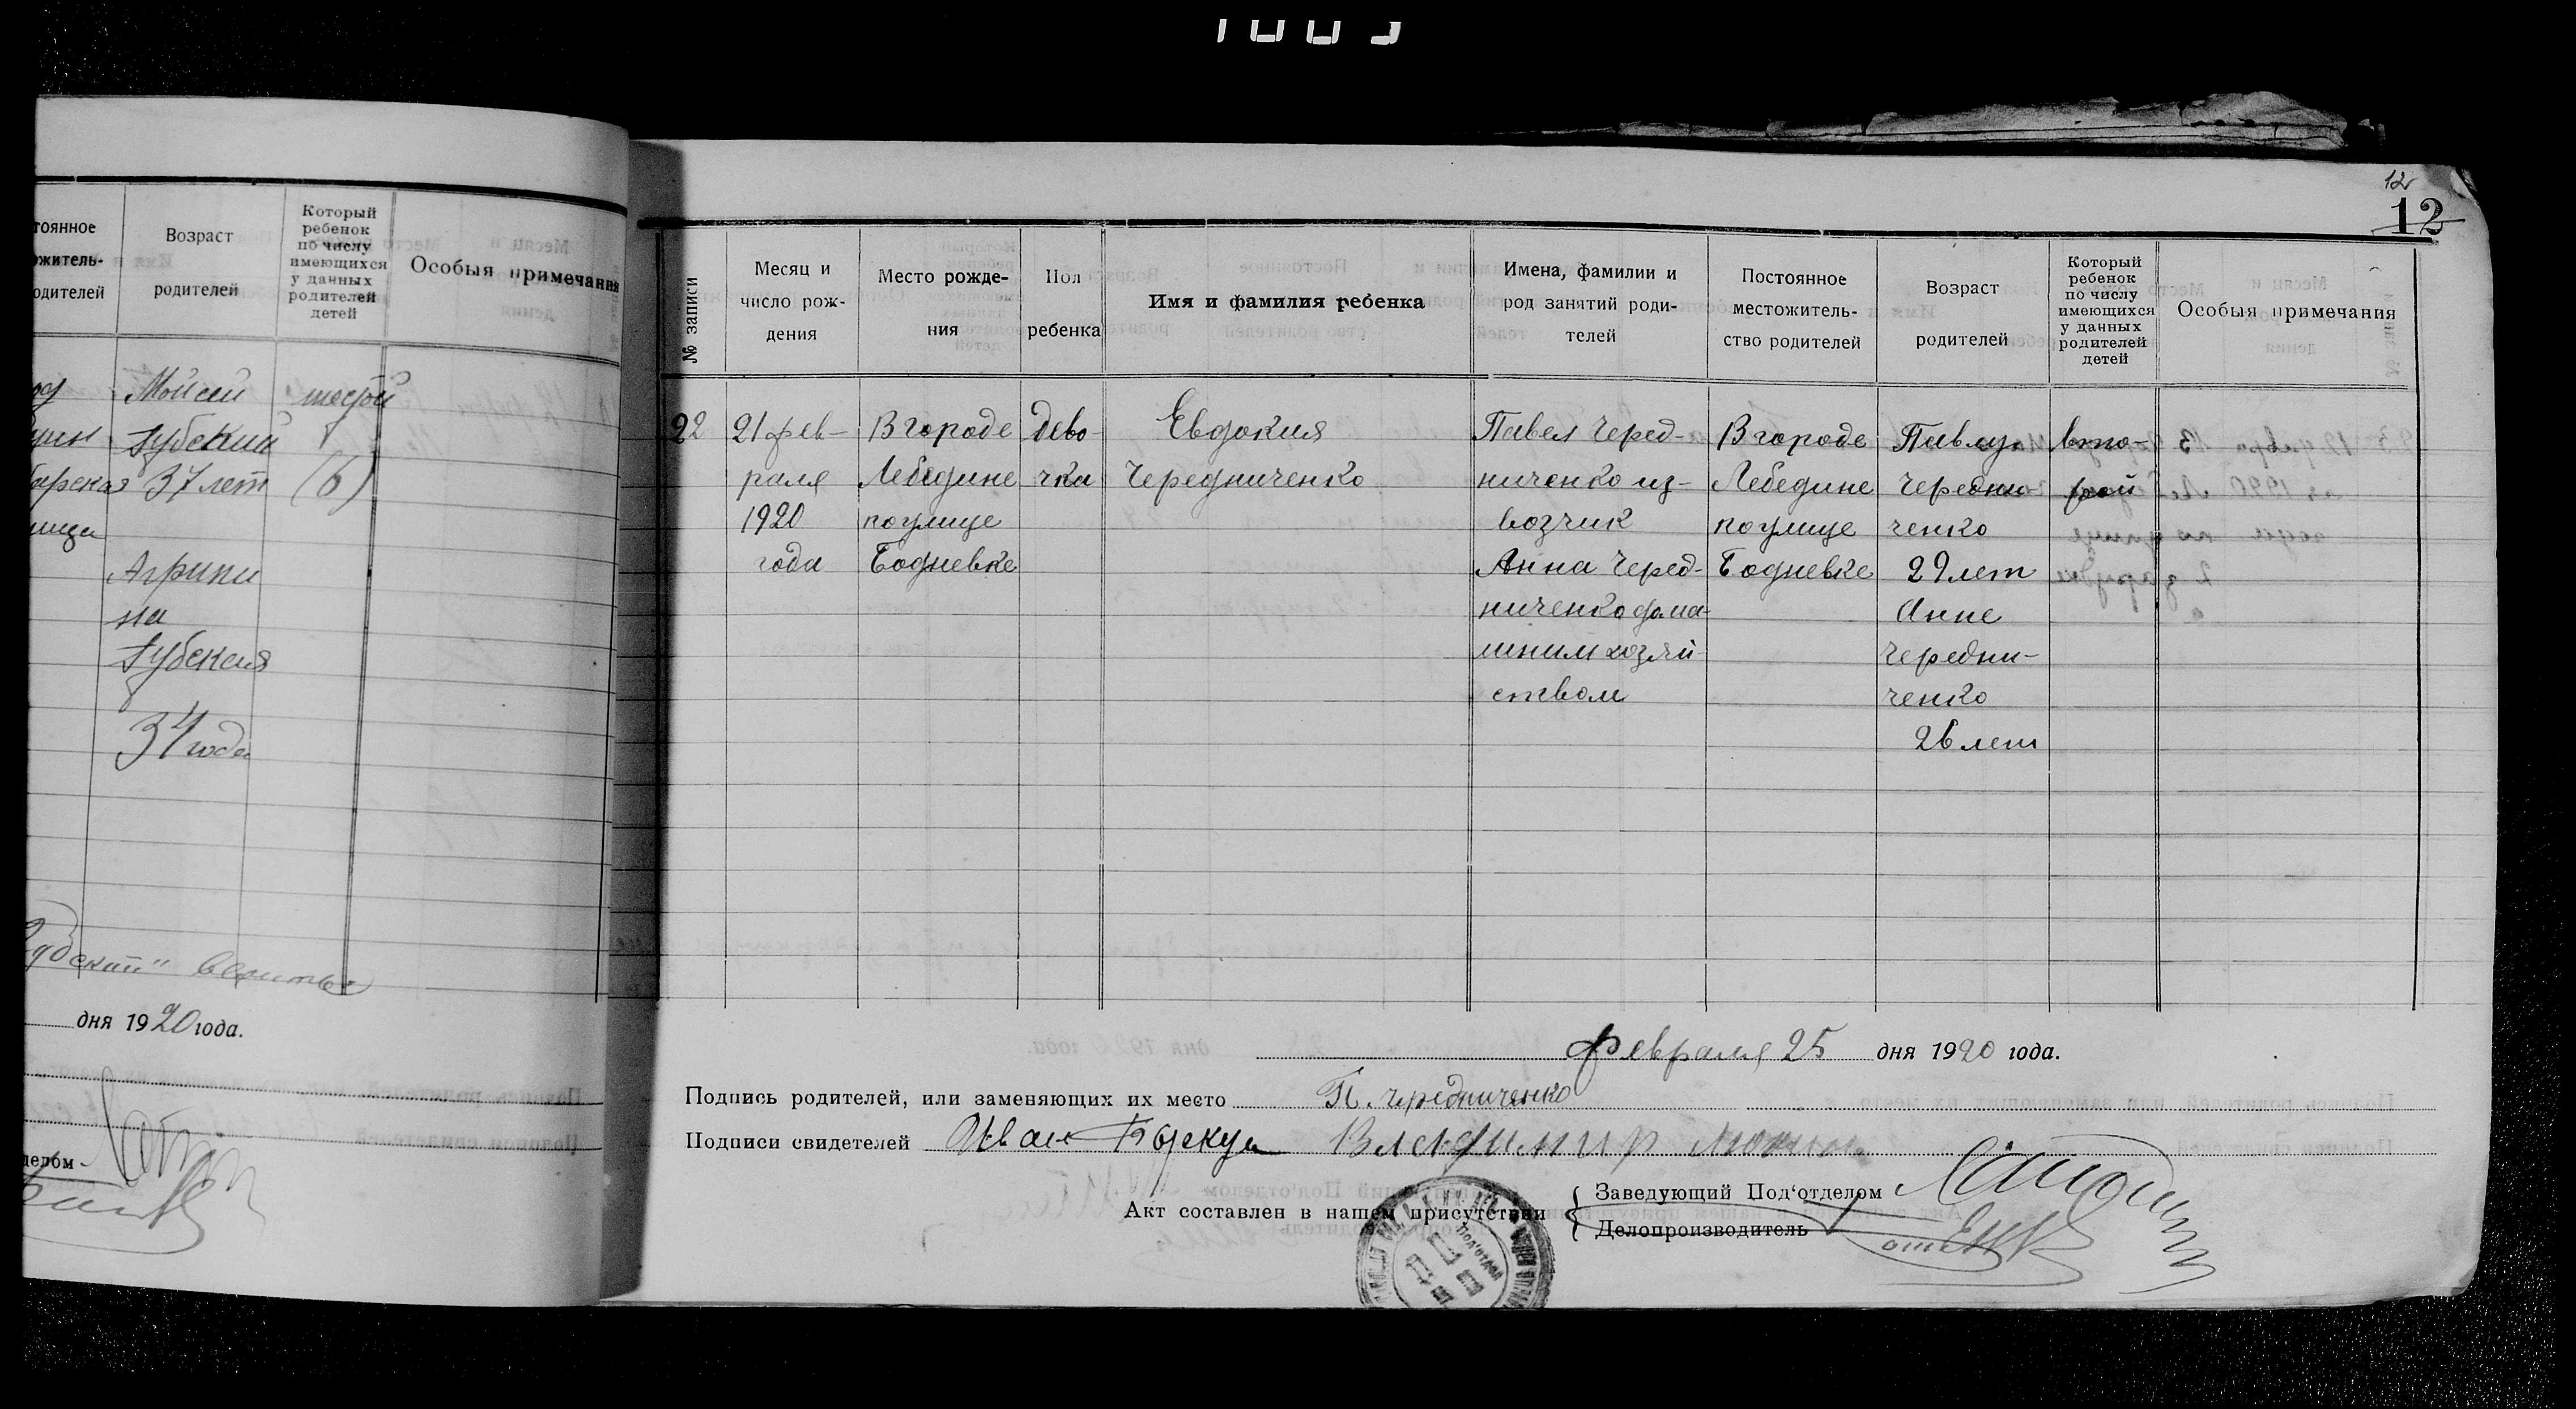 тоянное
ожитель-
одителей
Возраст
родителей
Который
ребенок
по числу
имеющихся
у данных
родителей
детей
Особыя примечания
Мойсей
Зубский
37 лет
Агрипи
на
Зубская
34 года
шестой
(6)
дня 1920 года.
делом
12
12
№ записи
Месяц и
число рож-
дения
Место рожде-
ния
Пол
ребенка
Имя и фамилия ребенка
Имена, фамилии и
род занятий роди-
телей
Постоянное
местожитель-
ство родителей
Возраст
родителей
Который
ребенок
по числу
имеющихся
у данных
родителей
детей
Особыя примечания
22
21 фев-
раля
1920
года
В городе
Лебедине
по улице
Бодневке
дево-
чка
Евдокия
Чередниченко
Павел Черед-
ниченко из-
возчик
Анна Черед-
ниченко дома-
шним хозяй-
ством
В городе
Лебедине
по улице
Бодневке
Павлу
Чередни-
ченко
29 лет
Анне
Чередни-
ченко
26 лет
вто-
рой
февраля 25 дня 1920 года.
Подпись родителей, или заменяющих их место П. Чередниченко
Подписи свидетелей Иван Владимир
Акт составлен в нашем присутствии
Заведующий Под'отделом
Делопроизводитель